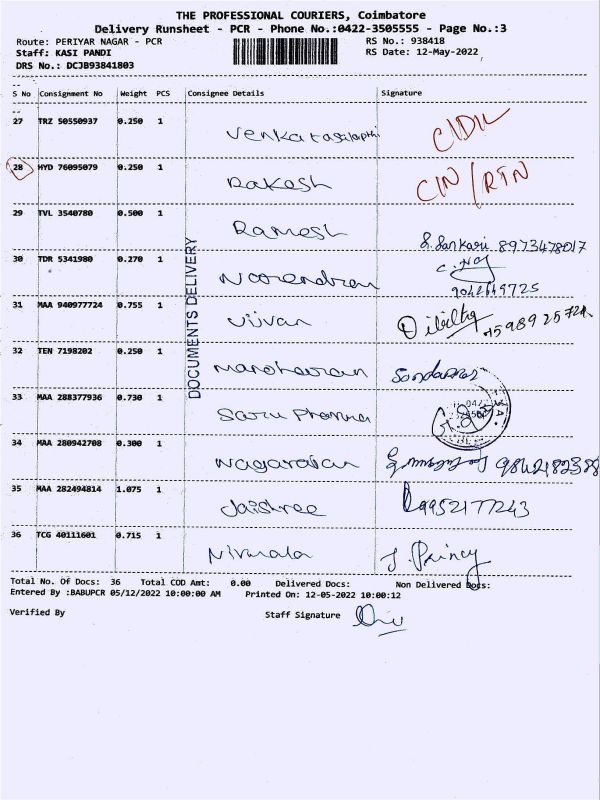 THE PROFESSIONAL COURIERS, Coimbatore
Delivery Runsheet - PCR - Phone No.:0422-3505555 - Page No.:3
Route: PERIYAR NAGAR - PCR RS No.: 938418
Staff: KASI PANDI RS Date: 12-May-2022
DRS No.: DCJB93841803
S No Consignment No Weight PCS Consignee Details Signature
27 TRZ 50550937 0.250 1
28 HYD 76095079 0.250 1 Rakesh CIN/RTN
29 TVL 3540780 0.500 1 Ramesh S. Sankari 8973478017
30 TDR 5341980 0.270 1 Narendran
31 MAA 940977724 0.755 1
32 TEN 7198202 0.250 1 Manoharan
33 MAA 288377936 0.730 1
34 MAA 280942708 0.300 1 Nagarajan
35 MAA 282494814 1.075 1 Jaishree 9952177243
36 TCG 40111601 0.715 1 Nirmala J. Princy
DOCUMENTS DELIVERY
Total No. Of Docs: 36 Total COD Amt: 0.00 Delivered Docs: Non Delivered Docs:
Entered By :BABUPCR 05/12/2022 10:00:00 AM Printed On: 12-05-2022 10:00:12
Verified By Staff Signature